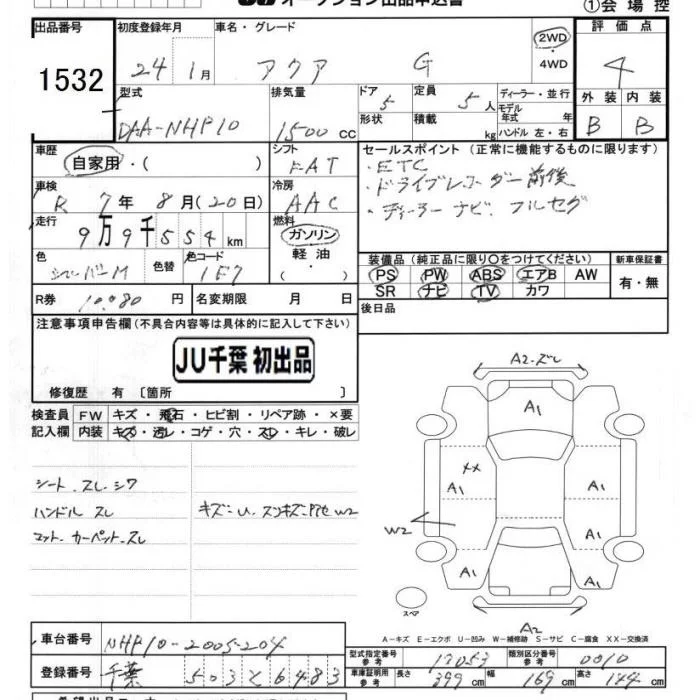 オークション出品申込書 ①会場控
出品番号 初度登録年月 車名・グレード 評価点
1532 24 1月 アクア G 2WD ・ 4WD 4
型式 排気量 ドア 定員 ディーラー・並行 外装 内装
DAA-NHP10 1500 CC 5 5人 モデル年式 年 B B
形状 積載 kg ハンドル 左・右
車歴 シフト セールスポイント (正常に機能するものに限ります)
自家用・( ) FAT ・ETC
車検 冷房 ・ドライブレコーダー前後
R 7年 8月(20日) AAC ・ディーラーナビ、フルセグ
走行 燃料
9万9千554km ガソリン
色 色替 色コード 軽油 装備品 (純正品に限り○をつけてください) 新車保証書
シルバーM 1F7 ( ) PS PW ABS エアB AW 有・無
SR ナビ TV カワ
R券 10,080円 名変期限 月 日 後日品
注意事項申告欄(不具合内容等は具体的に記入して下さい)
JU千葉 初出品
修復歴 有 〔箇所 〕
検査員 FW キズ・飛石・ヒビ割・リペア跡・×要
記入欄 内装 キズ・汚レ・コゲ・穴・スレ・キレ・破レ
シート、スレ、シワ
ハンドル スレ キズ-U、スンキズ、
マット、カーペット、スレ
A2、ズレ
A1
XX A1 A1
W2 A1
A1 A1
スペア A2
A-キズ E-エクボ U-凹み W-補修跡 S-サビ C-腐食 XX-交換済
車台番号 NHP10-2005204 型式指定番号 参考 17053 類別区分番号 参考 0010
登録番号 千葉 503 と 6483 車庫証明用 参考 長さ 399cm 幅 169cm 高さ 144cm